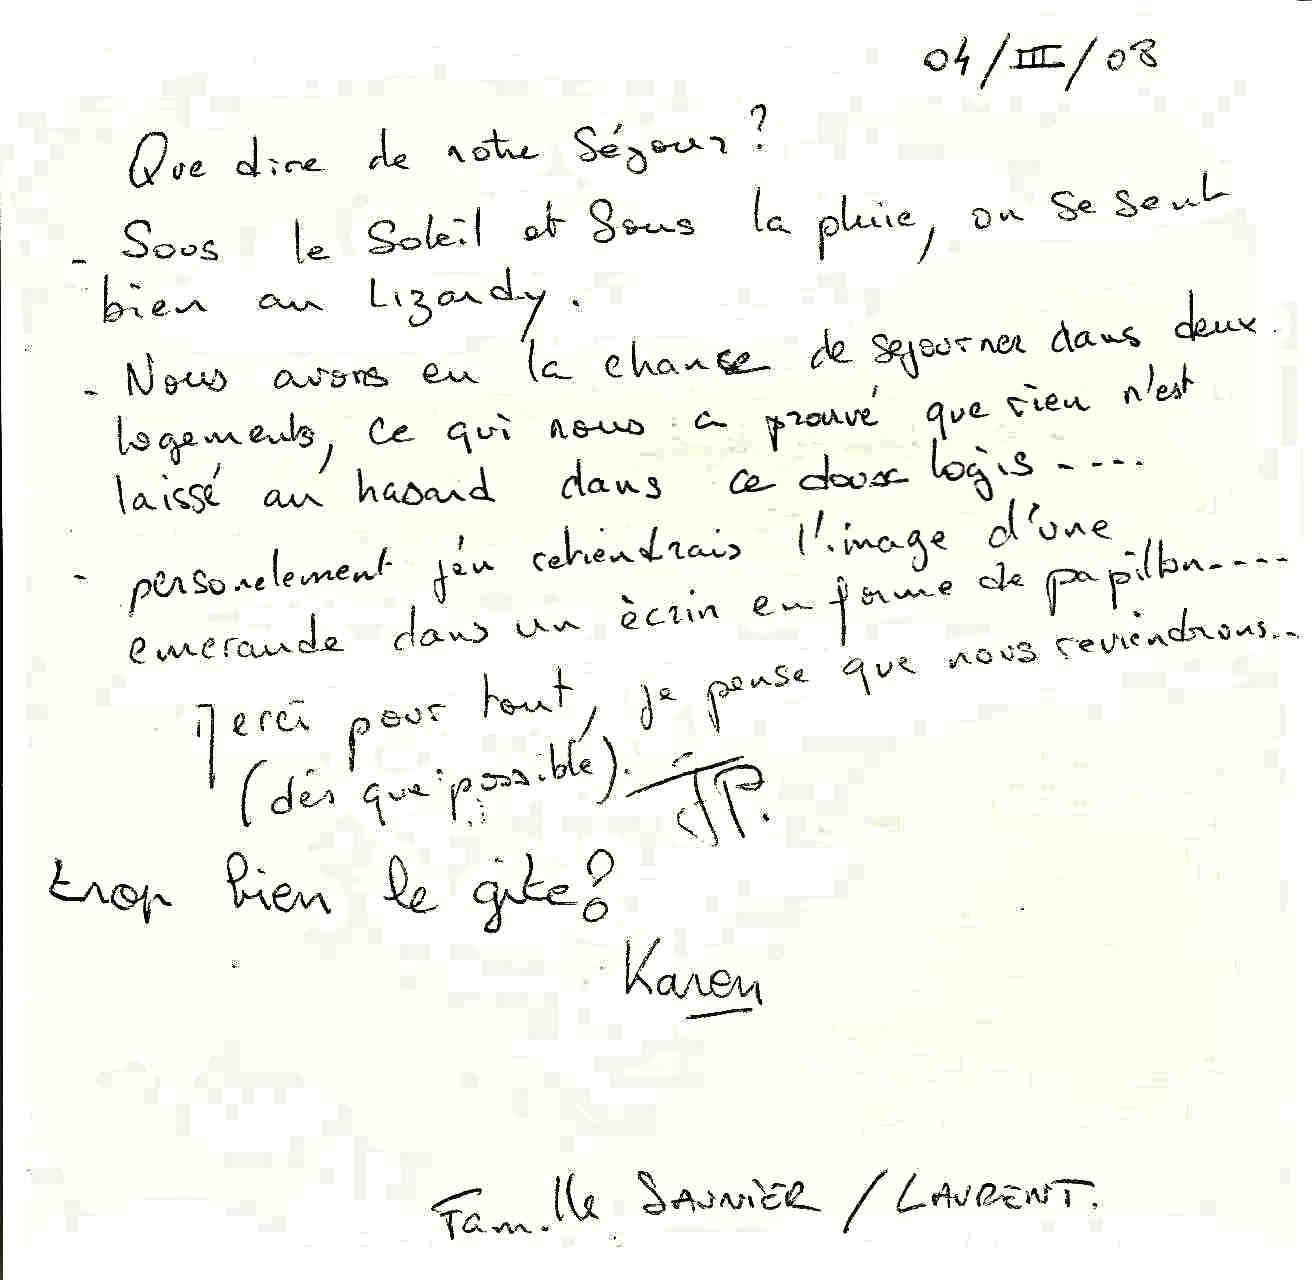 04/III/08
Que dire de notre Séjour?
- Sous le Soleil et Sous la pluie, on se sent
bien au Lizardy.
- Nous avons eu la chance de sejourner dans deux
logements, ce qui nous a prouvé que rien n'est
laissé au hasard dans ce doux logis.....
- personelement j'en retiendrais l'image d'une
emeraude dans un ècrin en forme de papillon.....
Merci pour tout, je pense que nous reviendrons...
(dés que possible). JP.
trop bien le gite!
Karen
Famille SAUNIER / LAURENT.